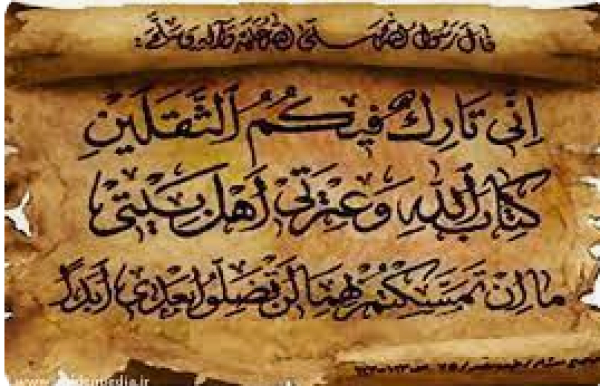 قال رسول الله صلى الله عليه وآله وسلم:
إِنّي تَارِكٌ فيكُمُ الثَّقَلَيْنِ
كِتَابَ اللهِ وَعِتْرَتي أَهْلَ بَيْتي
مَا اِنْ تَمَسَّكْتُمْ بِهِمَا لَنْ تَضِلُّوا بَعْدي أَبَدًا